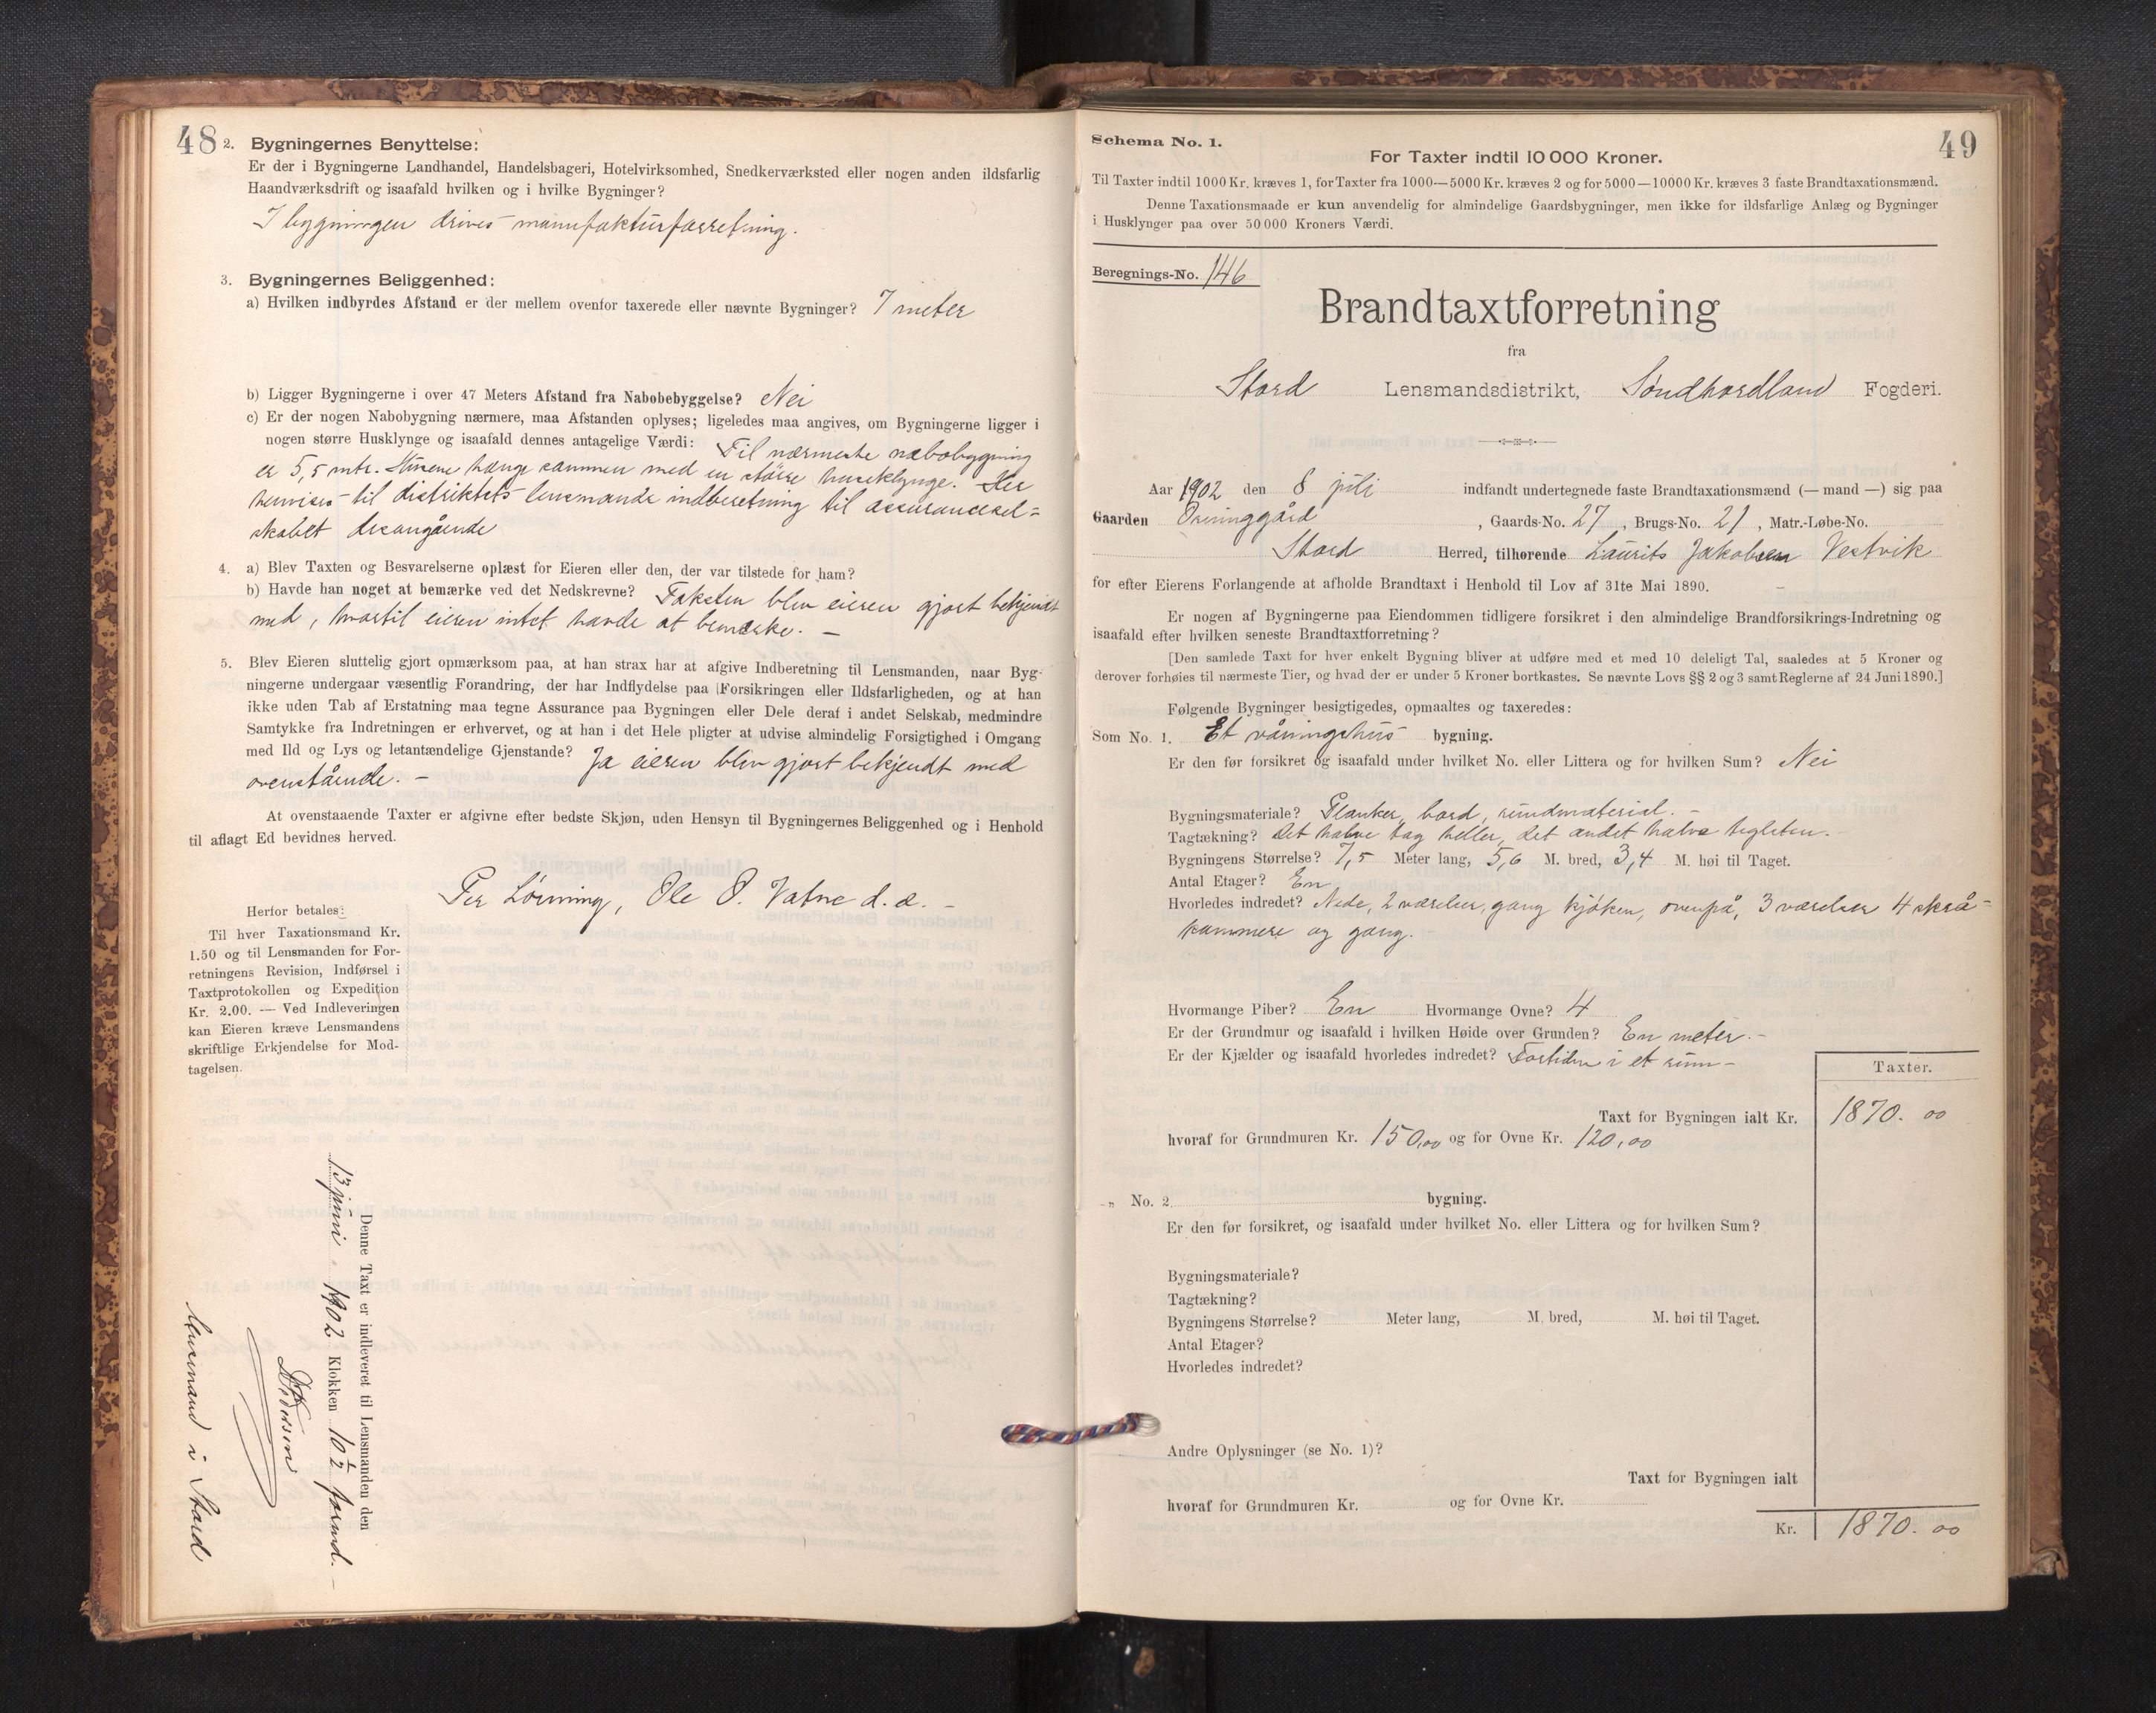 48
2. Bygningernes Benyttelse:
Er der i Bygningerne Landhandel, Handelsbageri, Hotelvirksomhed, Snedkerværksted eller nogen anden ildsfarlig
Haandværksdrift og isaafald hvilken og i hvilke Bygninger?
I bygningen drives manufakturforretning.
3. Bygningernes Beliggenhed:
a) Hvilken indbyrdes Afstand er der mellem ovenfor taxerede eller nævnte Bygninger? 7 meter
b) Ligger Bygningerne i over 47 Meters Afstand fra Nabobebyggelse? Nei
c) Er der nogen Nabobygning nærmere, maa Afstanden oplyses; ligeledes maa angives, om Bygningerne ligger i
nogen større Husklynge og isaafald dennes antagelige Værdi: Til nærmeste nabobygning
er 5,5 mtr. Husene hænge sammen med en større huseklynge. Her
henvises til distriktets lensmands indberetning til assurancesel=
skabet desangående
4. a) Blev Taxten og Besvarelserne oplæst for Eieren eller den, der var tilstede for ham?
b) Havde han noget at bemærke ved det Nedskrevne? Taksten blev eieren gjort bekjendt
med, hvortil eieren intet havde at bemerke. —
5. Blev Eieren sluttelig gjort opmærksom paa, at han strax har at afgive Indberetning til Lensmanden, naar Byg-
ningerne undergaar væsentlig Forandring, der har Indflydelse paa Forsikringen eller Ildsfarligheden, og at han
ikke uden Tab af Erstatning maa tegne Assurance paa Bygningen eller Dele deraf i andet Selskab, medmindre
Samtykke fra Indretningen er erhvervet, og at han i det Hele pligter at udvise almindelig Forsigtighed i Omgang
med Ild og Lys og letantændelige Gjenstande? Ja eieren blev gjort bekjendt med
ovenstående. —
At ovenstaaende Taxter er afgivne efter bedste Skjøn, uden Hensyn til Bygningernes Beliggenhed og i Henhold
til aflagt Ed bevidnes herved.
Per Lønning, Ole O. Vatne d. æ. —
Herfor betales:
Til hver Taxationsmand Kr.
1.50 og til Lensmanden for For-
retningens Revision, Indførsel i
Taxtprotokollen og Expedition
Kr. 2.00. — Ved Indleveringen
kan Eieren kræve Lensmandens
skriftlige Erkjendelse for Mod-
tagelsen.
Denne Taxt er indleveret til Lensmanden den
13 juni 1902 Klokken 10½ formd. —
Lensmand i Stord
Schema No. 1.
49
For Taxter indtil 10 000 Kroner.
Til Taxter indtil 1000 Kr. kræves 1, for Taxter fra 1000—5000 Kr. kræves 2 og for 5000—10000 Kr. kræves 3 faste Brandtaxationsmænd.
Denne Taxationsmaade er kun anvendelig for almindelige Gaardsbygninger, men ikke for ildsfarlige Anlæg og Bygninger
i Husklynger paa over 50 000 Kroners Værdi.
Beregnings-No. 146
Brandtaxtforretning
fra
Stord Lensmandsdistrikt, Søndhordland Fogderi.
Aar 1902 den 8 juli indfandt undertegnede faste Brandtaxationsmænd (— mand —) sig paa
Gaarden , Gaards-No. 27, Brugs-No. 21, Matr.-Løbe-No.
Stord Herred, tilhørende Laurits Jakobsen Vestvik
for efter Eierens Forlangende at afholde Brandtaxt i Henhold til Lov af 31te Mai 1890.
Er nogen af Bygningerne paa Eiendommen tidligere forsikret i den almindelige Brandforsikrings-Indretning og
isaafald efter hvilken seneste Brandtaxtforretning?
[Den samlede Taxt for hver enkelt Bygning bliver at udføre med et med 10 deleligt Tal, saaledes at 5 Kroner og
derover forhøies til nærmeste Tier, og hvad der er under 5 Kroner bortkastes. Se nævnte Lovs §§ 2 og 3 samt Reglerne af 24 Juni 1890.]
Følgende Bygninger besigtigedes, opmaaltes og taxeredes:
Som No. 1. Et våningshus bygning.
Er den før forsikret og isaafald under hvilket No. eller Littera og for hvilken Sum? Nei
Bygningsmateriale? Planker, bord, rundmaterial. —
Tagtækning? Det halve tag heller, det andet halve teglsten. —
Bygningens Størrelse? 7,5 Meter lang, 5,6 M. bred, 3,4 M. høi til Taget.
Antal Etager? En
Hvorledes indredet? Nede, 2 værelser, gang kjøken, ovenpå, 3 værelser 4 skrå-
kammere og gang. —
Hvormange Piber? En Hvormange Ovne? 4
Er der Grundmur og isaafald i hvilken Høide over Grunden? En meter. —
Er der Kjælder og isaafald hvorledes indredet? Fortiden i et rum —
Taxter.
Taxt for Bygningen ialt Kr. 1870. 00
hvoraf for Grundmuren Kr. 150,00 og for Ovne Kr. 120,00
„ No. 2 bygning.
Er den før forsikret, og isaafald under hvilket No. eller Littera og for hvilken Sum?
Bygningsmateriale?
Tagtækning?
Bygningens Størrelse? Meter lang, M. bred, M. høi til Taget.
Antal Etager?
Hvorledes indredet?
Andre Oplysninger (se No. 1)?
Taxt for Bygningen ialt
hvoraf for Grundmuren Kr. og for Ovne Kr.
Kr. 1870. 00